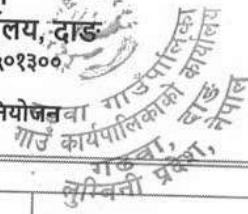 लय, दाङ
५०१३००
नियोजन
गढवा गाउँपालिका
गाउँ कार्यपालिकाको कार्यालय
गढवा, दाङ
लुम्बिनी प्रदेश, नेपाल